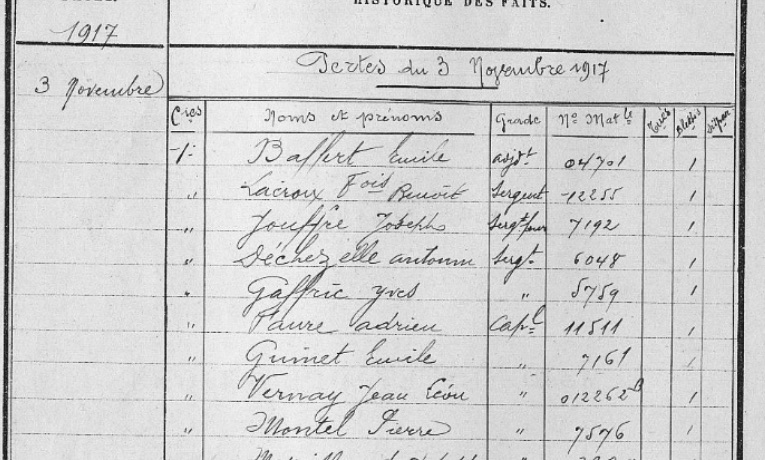 HISTORIQUE DES FAITS.
1917
Pertes du 3 Novembre 1917
3 Novembre
Cies Noms et prénoms Grade No Mle Tués Blessés
1 Baffert Emile adjdt 04701 1
" Lacroix Fois Benoit Sergent 12255 1
" Jouffre Joseph Sergt four 7192 1
" Déchezelle antonin Sergt 6048 1
" Gaffric Yves " 5759 1
" Faure adrien Capl 11511 1
" Guimet Emile " 7161 1
" Vernay Jean Léon " 012262B 1
" Montel Pierre " 7576 1